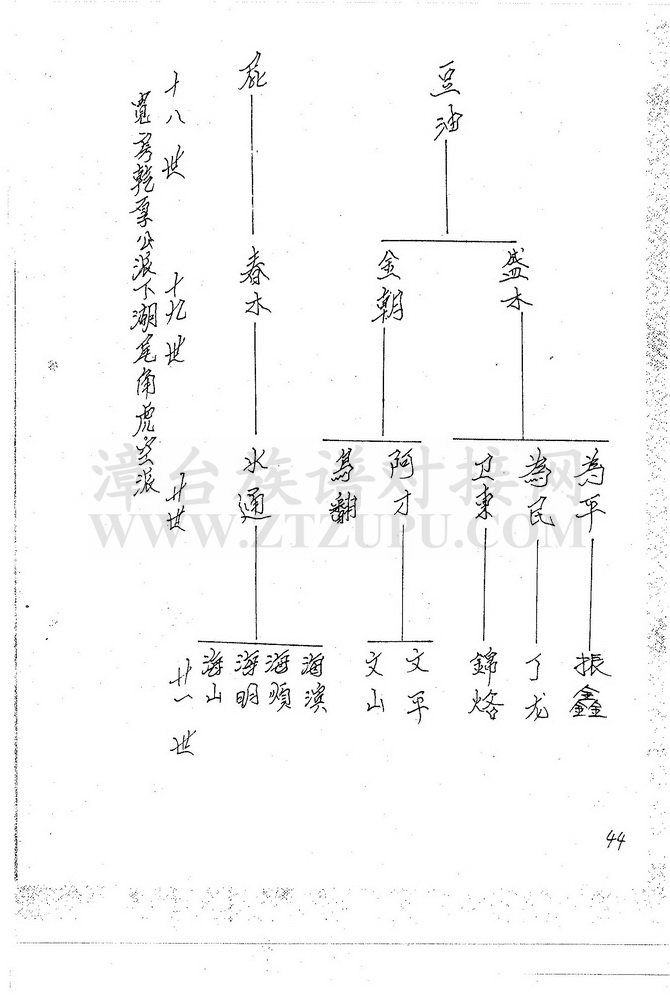 豆油
盛木
金朝
為平
為民
卫東
阿才
振鑫
丁龙
錦烙
文平
文山
春木
水通
海滨
海順
海明
海山
十八世
十九世
廿世
廿一世
寬房乾厚公派下湖尾角虎空派
漳台族谱对接网
WWW.ZTZUPU.COM
44